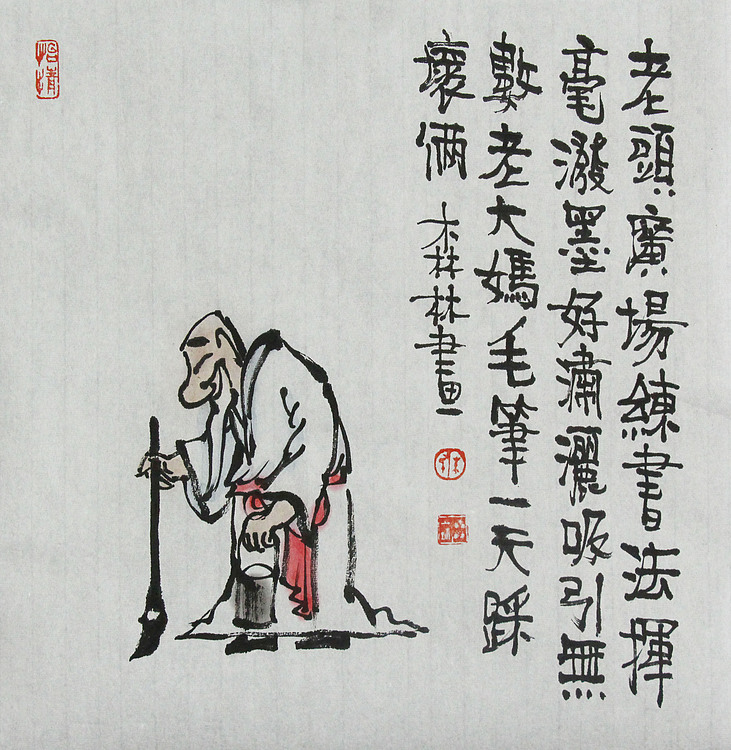 老頭廣場練書法揮
毫潑墨好瀟灑吸引無
數老大媽毛筆一天踩
壞倆
木森林畫
怡情